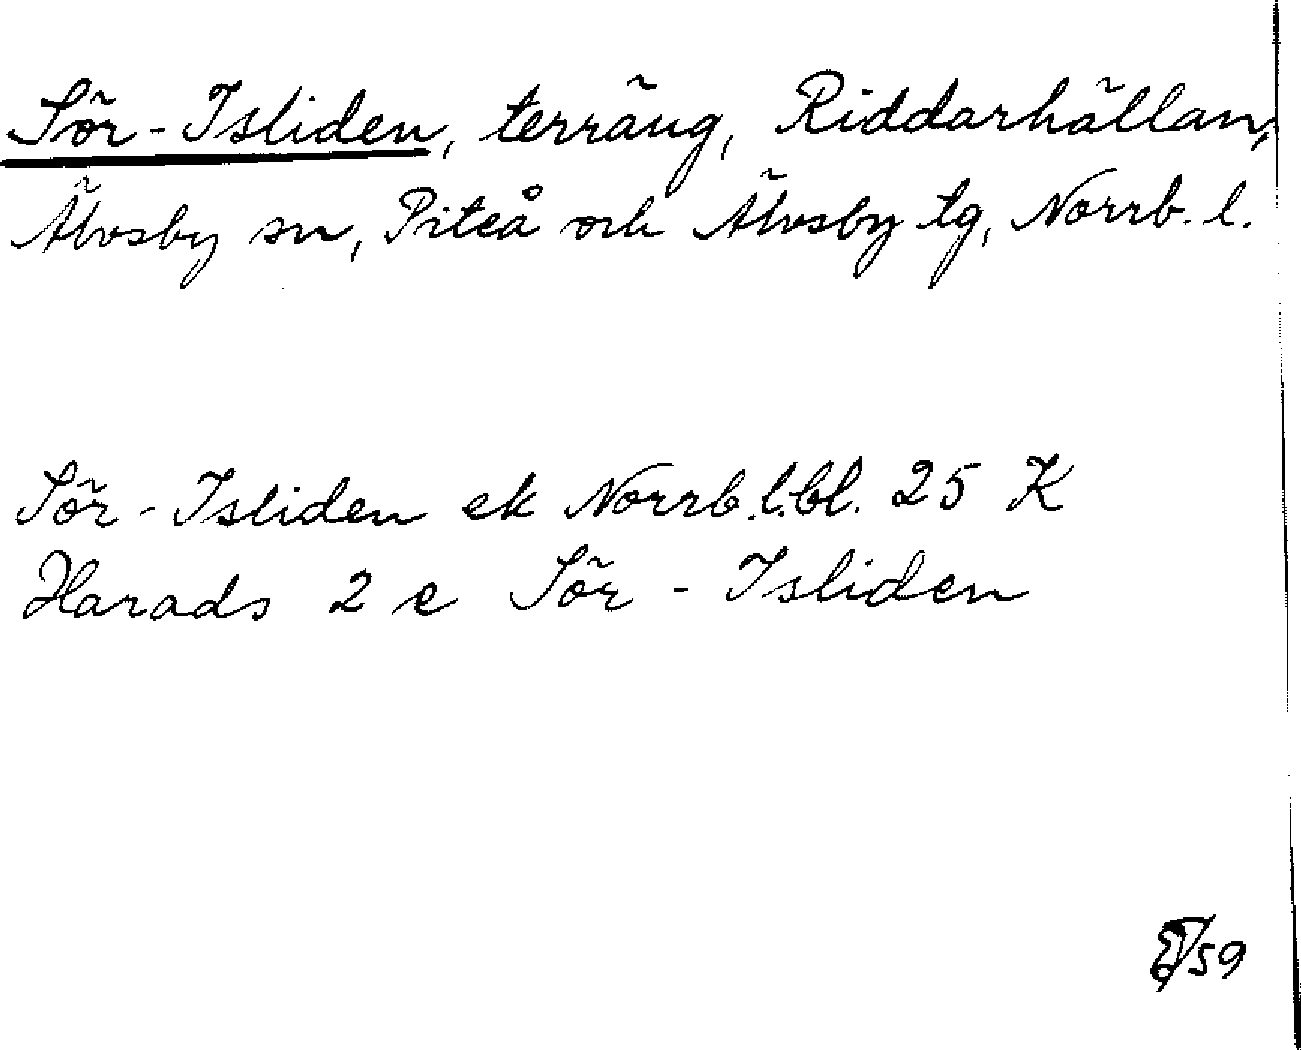 Sör-Isliden, terräng, Riddarhällan,
Älvsby sn, Piteå och Älvsby tg, Norrb. l.
Sör-Isliden ek Norrb.l.bl. 25 K
Harads 2 c Sör-Isliden
/59